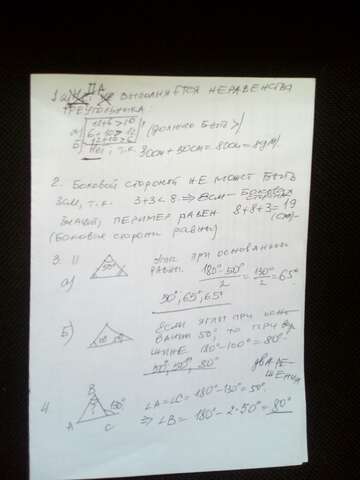 ДА
выполняется неравенства
треугольника:
12+6>10
а) 6+10>12 (должно быть >)
12+10>6
б) Нет, т.к. 30см+50см=80см=8дм
2. Боковой стороной не может быть
3см, т.к. 3+3<8 ⇒ 8см –
значит, пеример равен 8+8+3=19
(Боковые стороны равны) (см)
3. 11
а) 50° углы при основании
равны. 180°-50°/2 = 130°/2 = 65°
50°, 65°, 65°
б) Если углы при осно-
вании 50°, то при вер
шине 180°-100°=80°
50°, 50°, 80° два ре-
шения
4. B
130° ∠A=∠C=180°-130°=50°
A C ⇒ ∠B= 180°-2·50°=80°